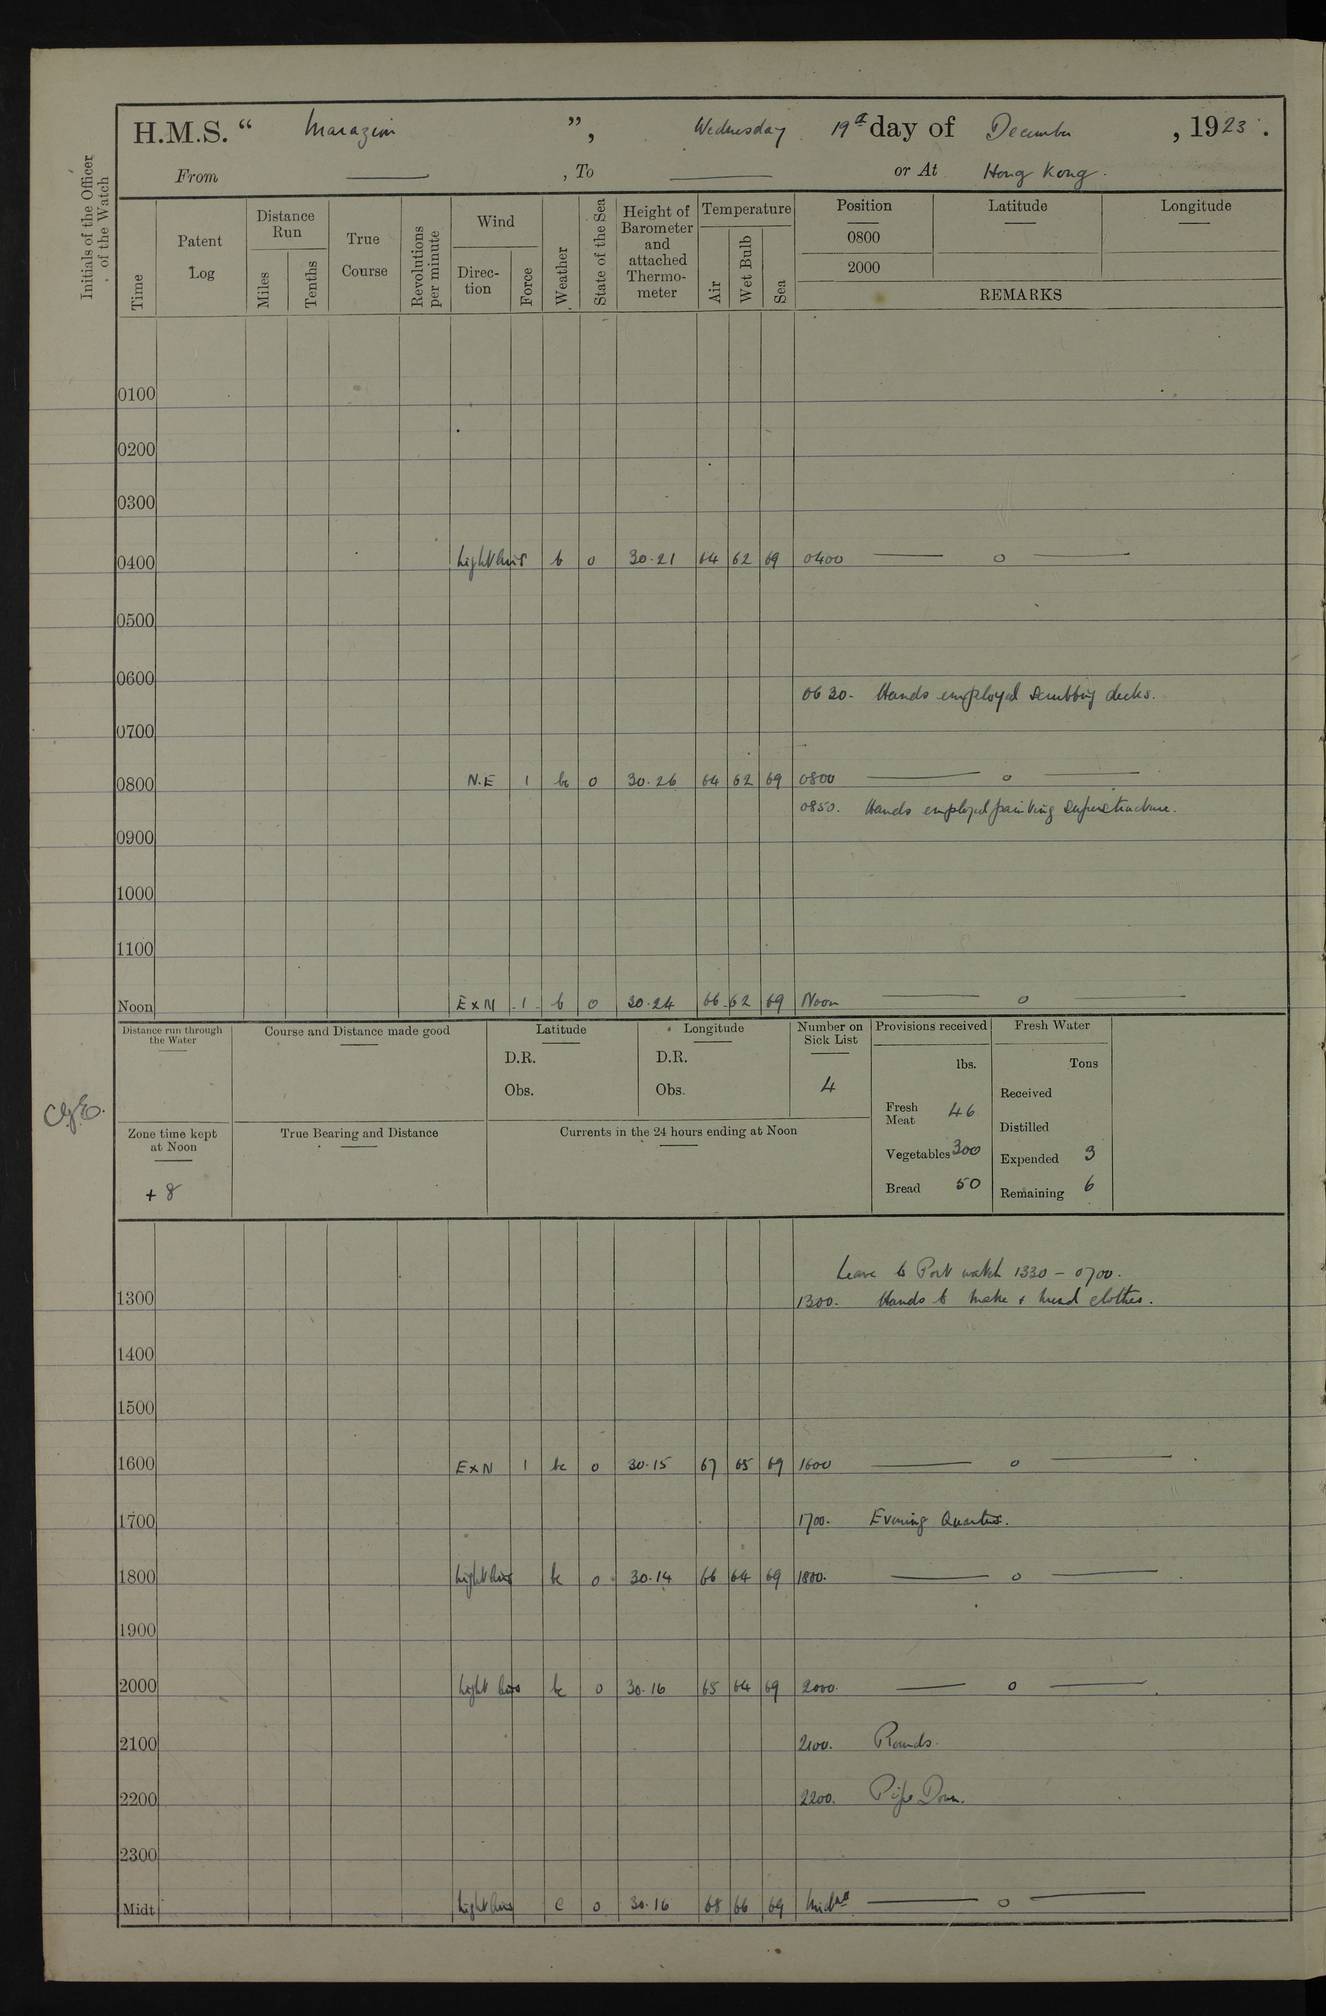 H.M.S. “ Marazion ”, Wednesday 19th day of December, 1923.
From — , To — or At Hong Kong.
Initials of the Officer of the Watch
Time
Patent Log
Distance Run
Miles
Tenths
True Course
Revolutions per minute
Wind
Direc-tion
Force
Weather
State of the Sea
Height of Barometer and attached Thermo-meter
Temperature
Air
Wet Bulb
Sea
Position Latitude Longitude
0800
2000
REMARKS
0100
0200
0300
0400 Light airs b 0 30.21 64 62 69 0400 — o —
0500
0600
0630. Hands employed scrubbing decks.
0700
0800 N.E 1 bc 0 30.26 64 62 69 0800 — o —
0850. Hands employed painting superstructure.
0900
1000
1100
Noon ExN 1 b 0 30.24 66 62 69 Noon — o —
Distance run through the Water
Course and Distance made good
Latitude
D.R.
Obs.
Longitude
D.R.
Obs.
Number on Sick List
4
Provisions received
lbs.
Fresh Meat 46
Vegetables 300
Bread 50
Fresh Water
Tons
Received
Distilled
Expended 3
Remaining 6
Zone time kept at Noon
+ 8
True Bearing and Distance
Currents in the 24 hours ending at Noon
Leave to Port watch 1330 – 0700.
1300 1300. Hands to make & mend clothes.
1400
1500
1600 ExN 1 bc 0 30.15 67 65 69 1600 — o —
1700 1700. Evening Quarters.
1800 Light airs bc 0 30.14 66 64 69 1800. — o —
1900
2000 Light airs bc 0 30.16 65 64 69 2000. — o —
2100 2100. Rounds.
2200 2200. Pipe Down.
2300
Midt Light airs c 0 30.16 68 66 69 Midnt — o —